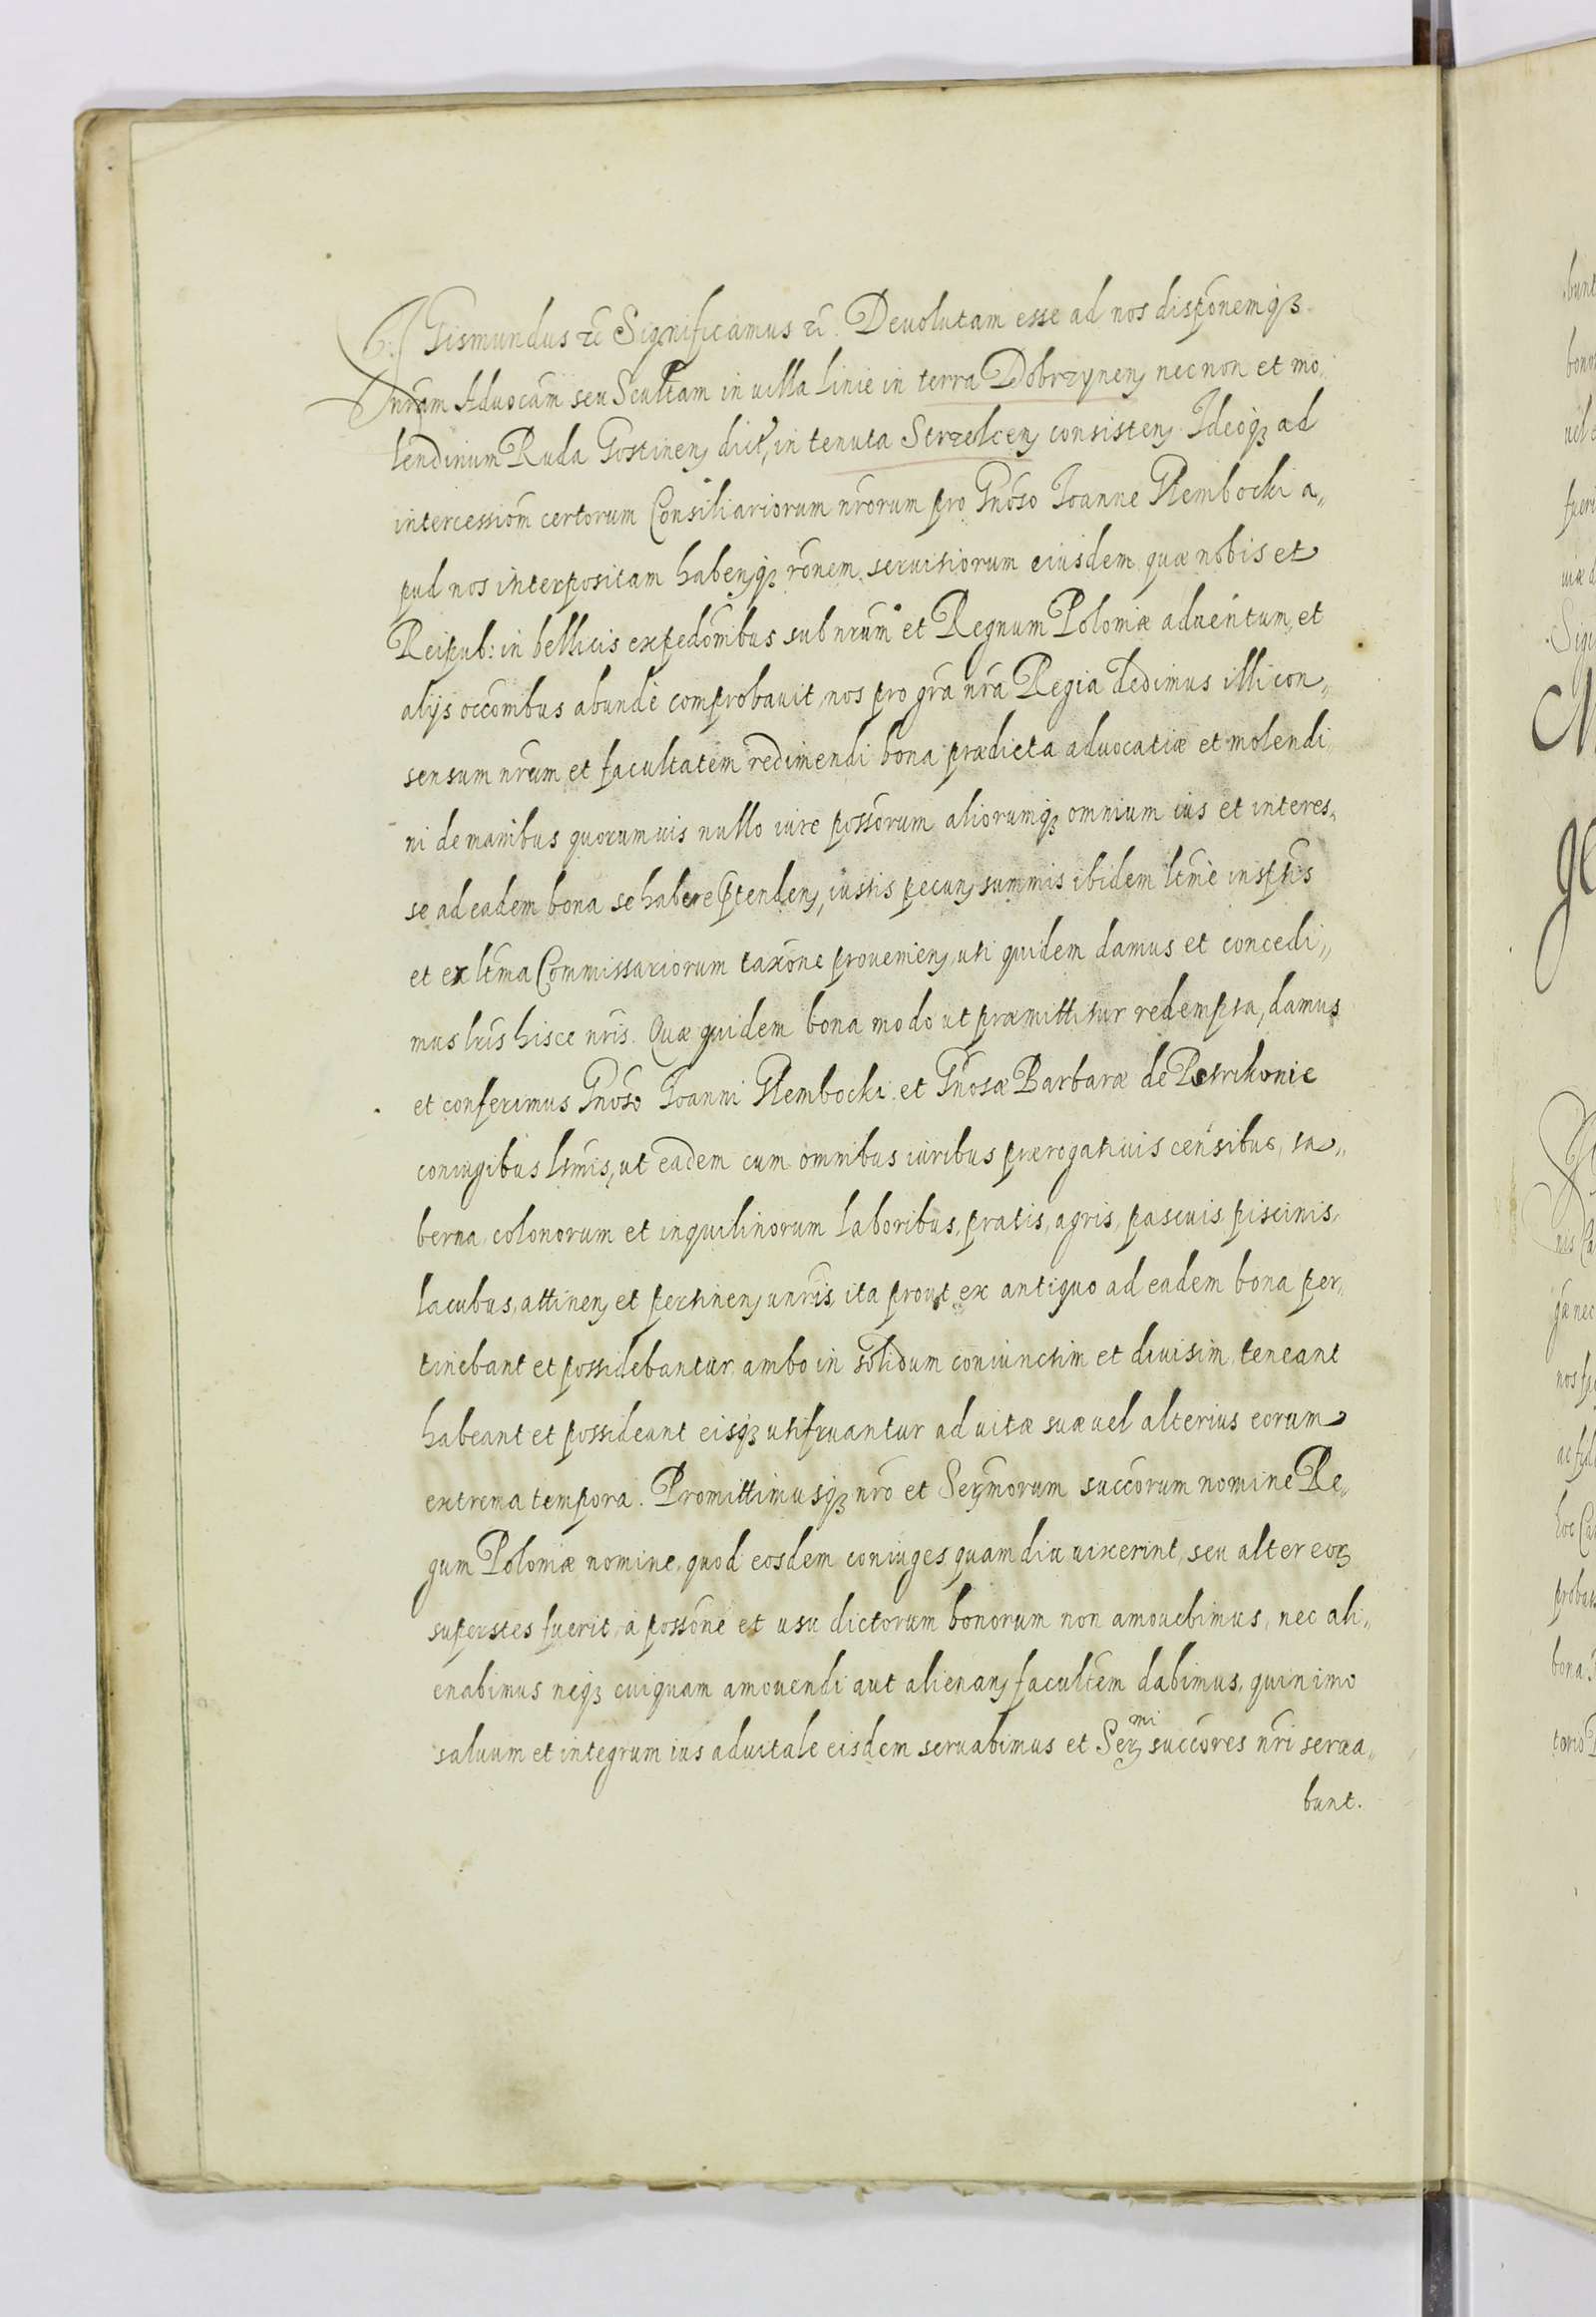 SGismundus etc̃ Significamus etc̃. Deuolutam esse ad nos dispõnemq3
nr̃am Aduocãm seu Scultãm in uilla Linie in terra Dobrzynenʒ nec non et mo„
lendinum Ruda Gostinenʒ dict, in tenuta Strzelcenʒ consistenʒ Ideoq3 ad
intercessiõm certorum Consiliariorum nr̃orum pro Gnõso Ioanne Glembocki a„
pud nos interpositam habenʒq3 rõnem seruitiorum eiusdem quæ nobis et
Reipub: in bellicis expedõnibus sub nr̃um et Regnum Poloniæ aduentum, et
alijs occõnibus abundè comprobauit, nos pro gr̃a nr̃a Regia dedimus illi con„
sensum nr̃um et facultatem redimendi bona prædicta aduocatiæ et molendi„
ni de manibus quorumuis nullo iure possõrum aliorumq3 omnium ius et interes„
se ad eadem bona se habere p̃tendenʒ, iustis pecunʒ summis ibidem ltm̃è inscp̃tis
et ex ltm̃a Commissariorum taxõne prouenienʒ, uti quidem damus et concedi„
mus lr̃is hisce nr̃is. Quæ quidem bona modo ut præmittitur redempta, damus
et conferimus Gnõso Ioanni Glembocki et Gnõsæ Barbaræ de Petrikonie
coniugibus ltm̃is, ut eadem cum omnibus iuribus prærogatiuis censibus, ta„
berna, colonorum et inquilinorum laboribus, pratis, agris, pascuis piscinis,
lacubus, attinenʒ et pertinenʒ unr̃is, ita prout ex antiquo ad eadem bona per„
tinebant et possidebantur ambo in solidum coniunctim et diuisim, teneant
habeant et possideant eisq3 utifruantur ad uitæ suæ uel alterius eorum
extrema tempora. Promittimusq3 nr̃o et Serʒmorum succõrum nomine Re„
gum Poloniæ nomine, quod eosdem coniuges quamdiu uixerint, seu alter eoꝝ
superstes fuerit, à possõne et usu dictorum bonorum non amouebimus, nec ali„
enabimus neq3 cuiquam amouendi aut alienanʒ facultẽm dabimus, quinimo
saluum et integrum ius aduitale eisdem seruabimus et Serʒmi succõres nr̃i serua„
bunt.